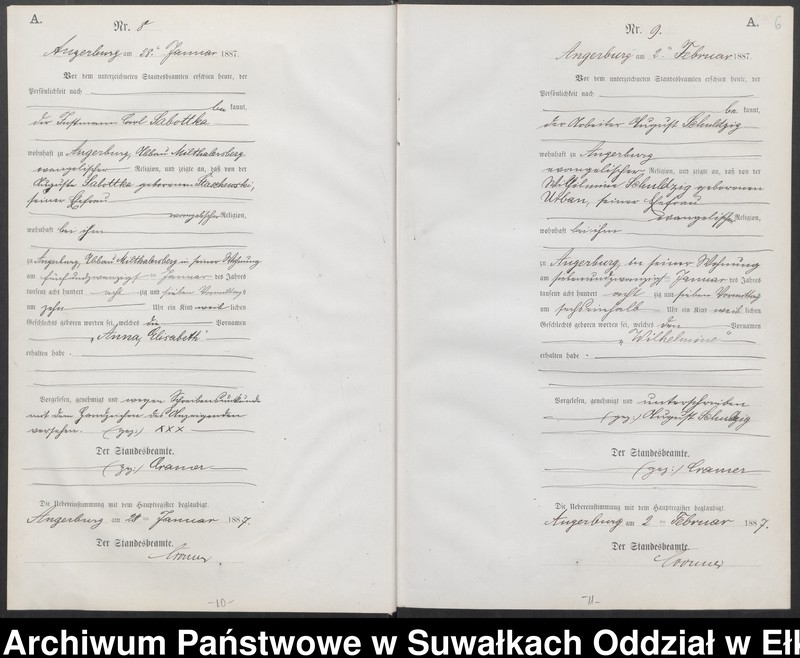 A.
Nr. 8
Angerburg am 28. Januar 1887.
Vor dem unterzeichneten Standesbeamten erschien heute, der
Persönlichkeit nach
be kannt,
der Instmann Carl Sabottka
wohnhaft zu Angerburg, Abbau Milthalersberg
evangelischer Religion, und zeigte an, daß von der
Auguste Sabottka geborenen
seiner Ehefrau
evangelischer Religion,
wohnhaft bei ihm
zu Angerburg, Abbau Milthalersberg in seiner Wohnung
am fünfundzwanzigsten Januar des Jahres
tausend acht hundert acht zig und sieben Vormittags
um zehn Uhr ein Kind weib lichen
Geschlechts geboren worden sei, welches die Vornamen
„Anna, Elisabeth"
erhalten habe.
Vorgelesen, genehmigt und wegen Schreibensunkunde
mit dem Handzeichen des Anzeigenden
versehen. (gez.) XXX
Der Standesbeamte.
(gez.) Cramer
Die Uebereinstimmung mit dem Hauptregister beglaubigt.
Angerburg am 28 ten Januar 1887.
Der Standesbeamte.
Cramer
-10-
A.
6
Nr. 9.
Angerburg am 2. Februar 1887.
Vor dem unterzeichneten Standesbeamten erschien heute, der
Persönlichkeit nach
be kannt,
der Arbeiter August Schuldzig
wohnhaft zu Angerburg
evangelischer Religion, und zeigte an, daß von der
Wilhelmine Schuldzig geborenen
Urban, seiner Ehefrau
evangelischer Religion,
wohnhaft bei ihm
zu Angerburg, in seiner Wohnung
am siebenundzwanzigsten Januar des Jahres
tausend acht hundert acht zig und sieben Vormittag
um sechseinhalb Uhr ein Kind weib lichen
Geschlechts geboren worden sei, welches den Vornamen
„Wilhelmine"
erhalten habe.
Vorgelesen, genehmigt und unterschrieben
(gez.) August Schuldzig
Der Standesbeamte.
(gez.) Cramer
Die Uebereinstimmung mit dem Hauptregister beglaubigt.
Angerburg am 2 ten Februar 1887.
Der Standesbeamte.
Cramer
-11-
Archiwum Państwowe w Suwałkach Oddział w Ełk